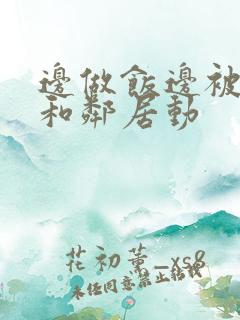 邊做飯邊被
和鄰居動
花初薰_xs8
未任同意禁止轉載